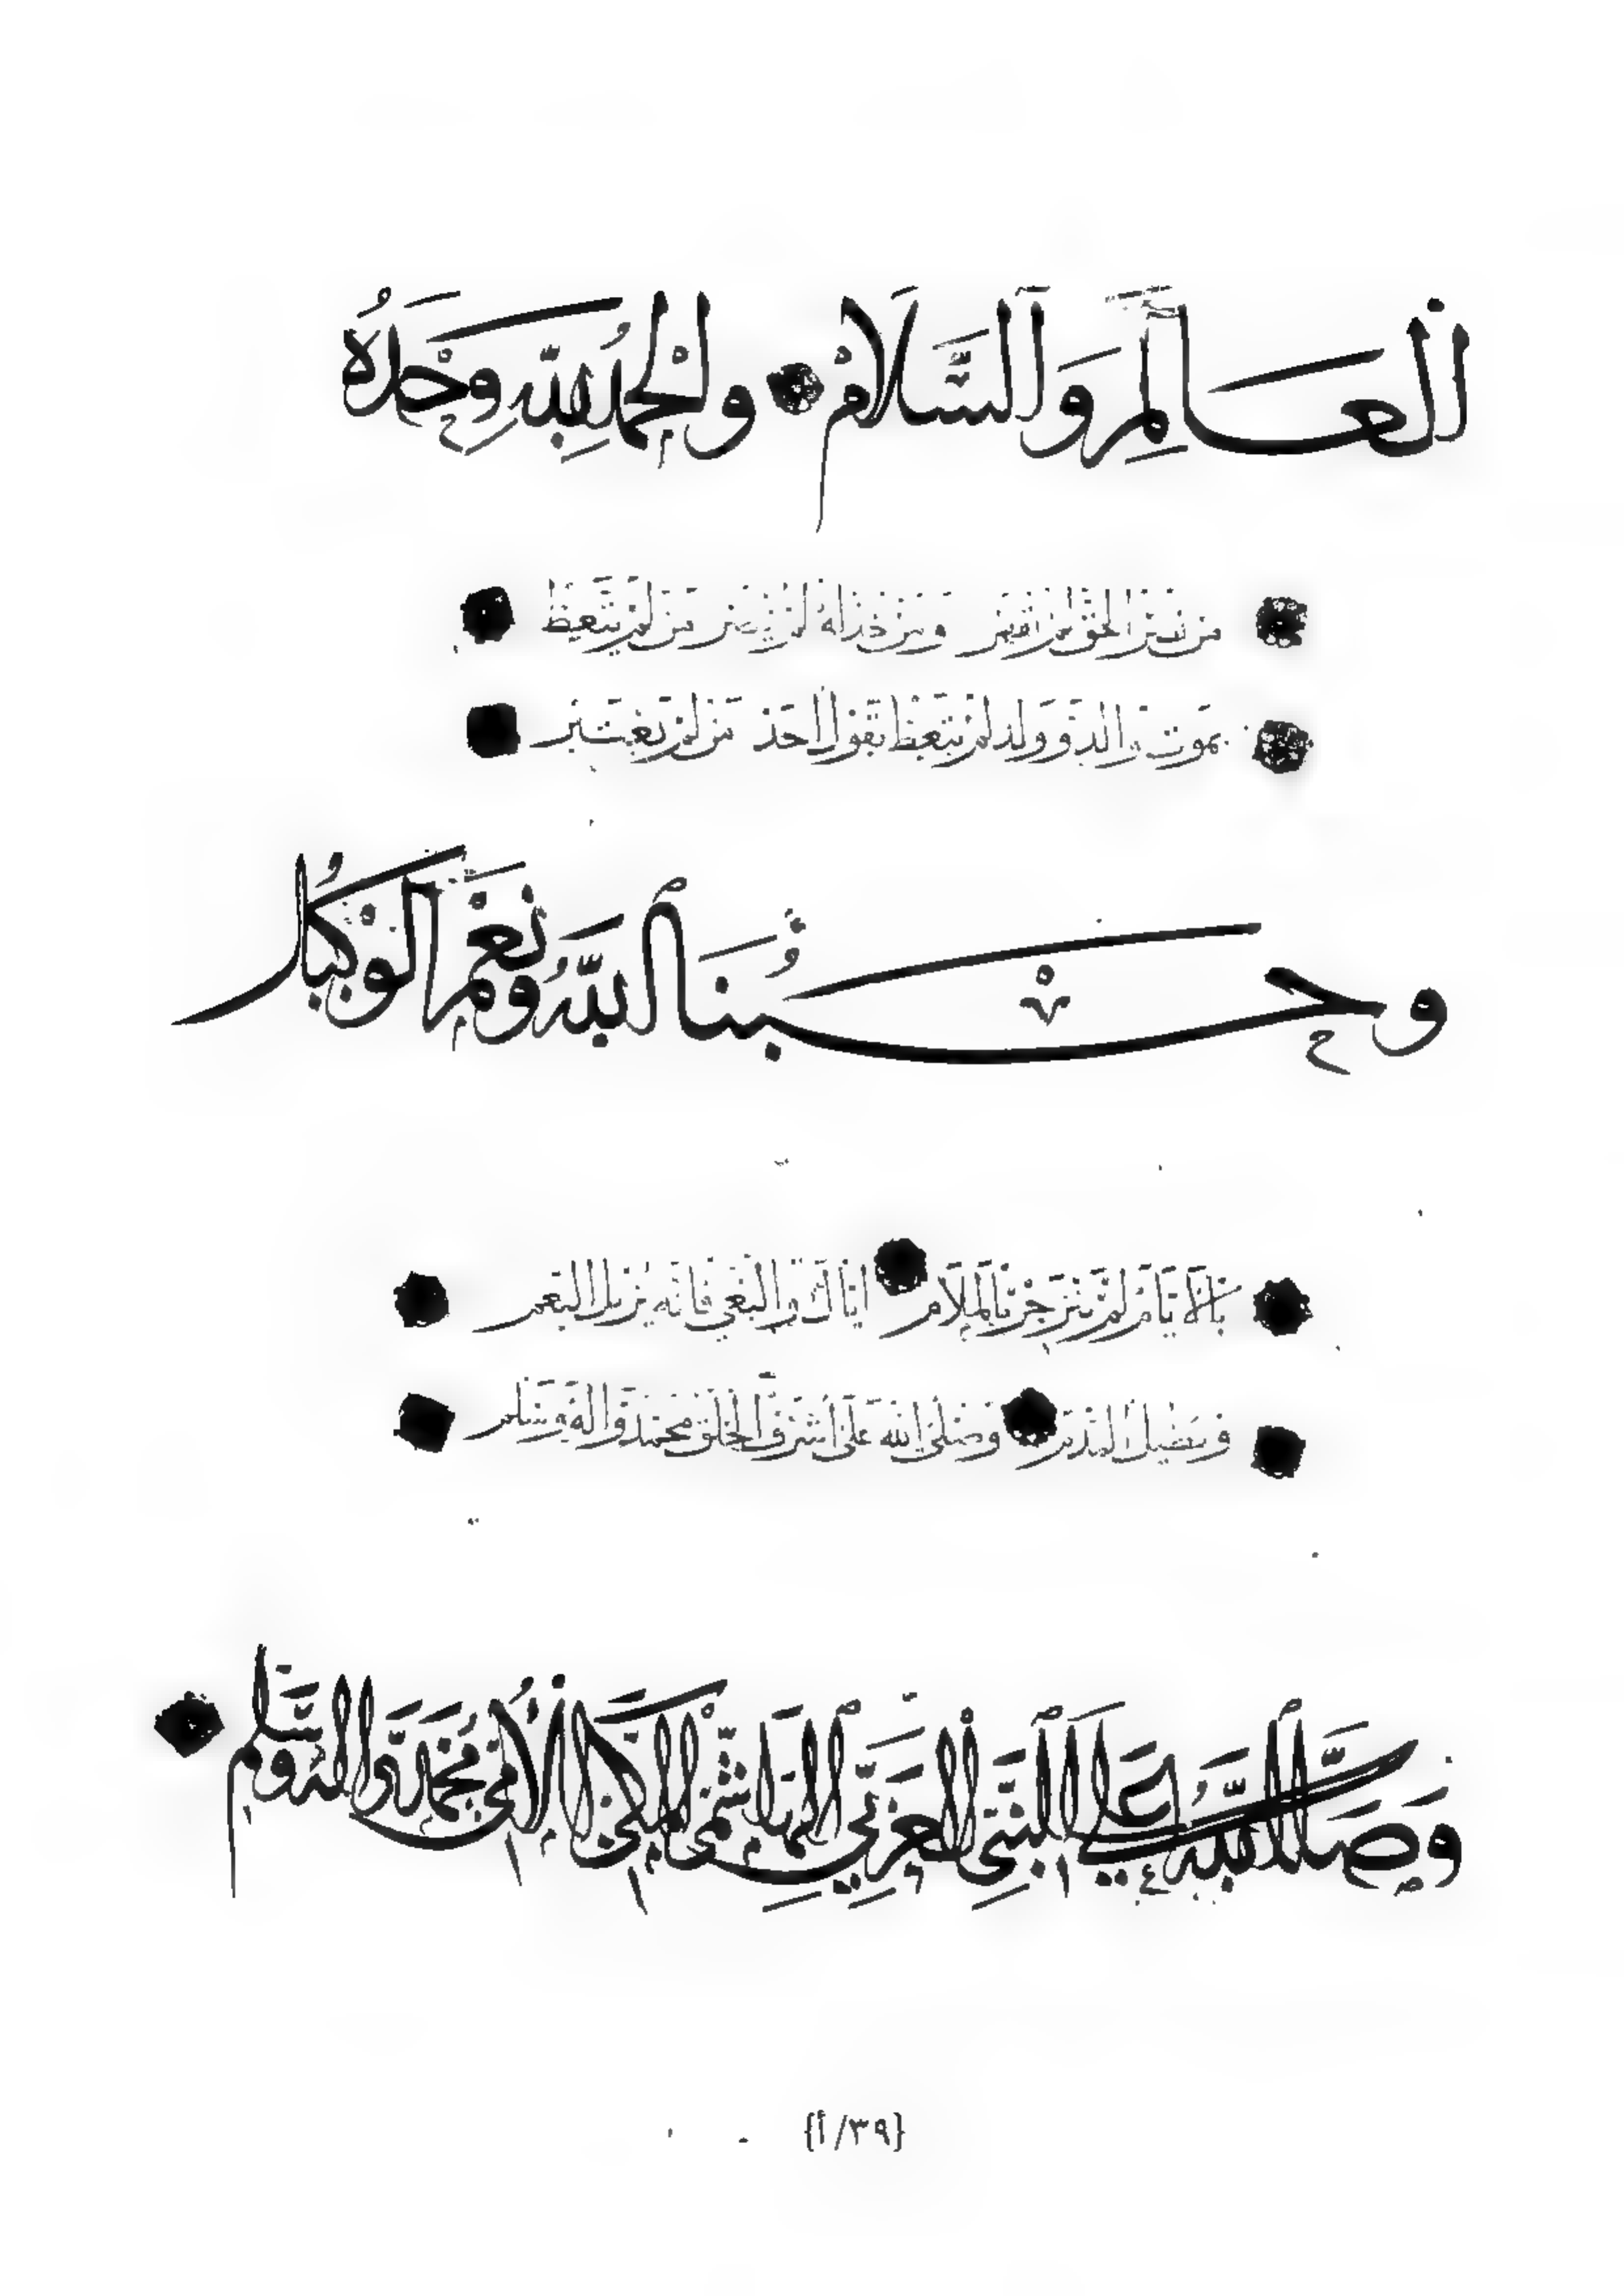 العالم والسلام والحمد لله وحده
من نصر الحق لم يقهر ومن خذله لم ينصر من لم يتعظ
بموت والد وولد لم يتعظ بقول أحد من لم يعتبر
وحسبنا الله ونعم الوكيل
بالأيام لم ينزجر بالملام إياك والبغي فإنه يزيل النعم
ويطيل الندم وصلى الله على أشرف الخلق محمد وآله وسلم
وصلى الله على النبي العربي الهاشمي المكي الأمي محمد وآله وسلم
{٣٩/أ}